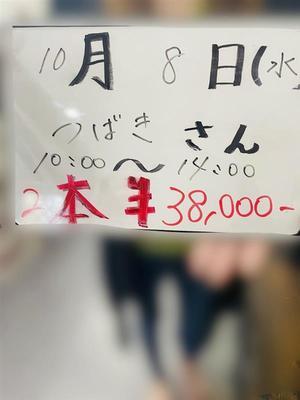 10月 8日(水
つばき さん
10:00〜14:00
2本 ¥38,000-